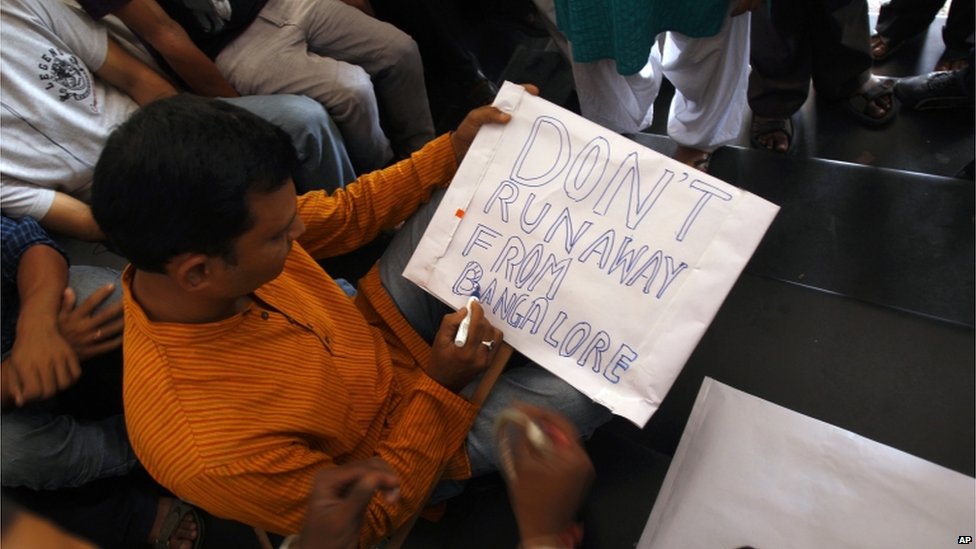 VEGER
DON'T
RUNAWAY
FROM
BANGALORE
AP